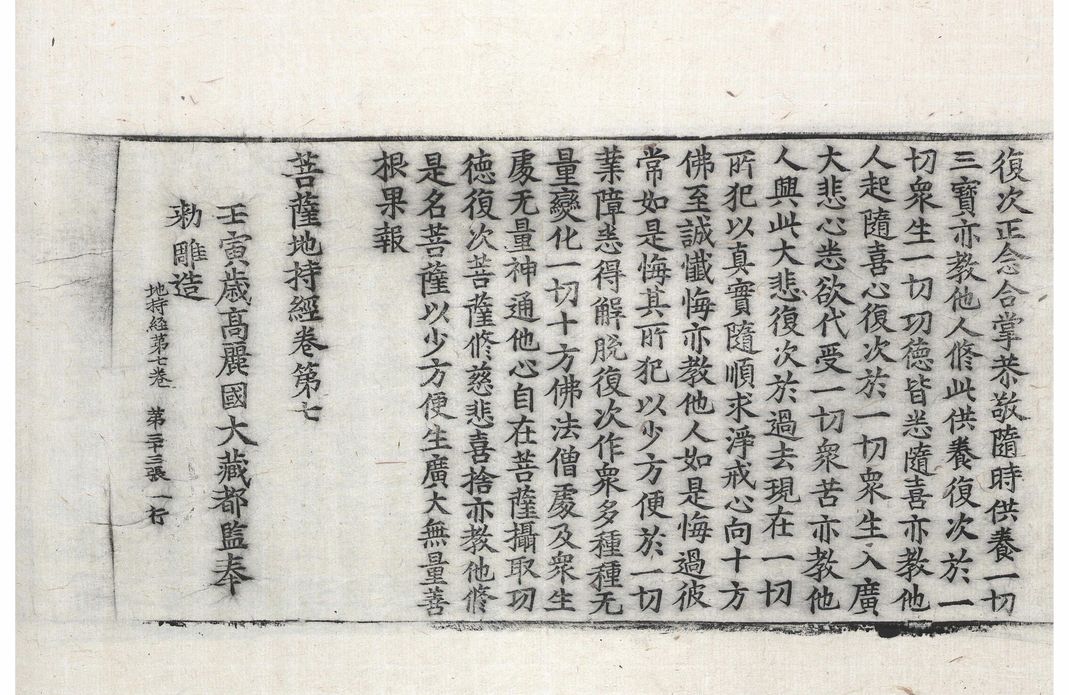 復次正念合掌恭敬隨時供養一切
三寶亦教他人修此供養復次於一
切衆生一切功德皆悉隨喜亦教他
人起隨喜心復次於一切衆生入廣
大悲心悉欲代受一切衆苦亦教他
人興此大悲復次於過去現在一切
所犯以真實隨順求淨戒心向十方
佛至誠懺悔亦教他人如是悔過彼
常如是悔其所犯以少方便於一切
業障悉得解脫復次作衆多種種无
量變化一切十方佛法僧處及衆生
處无量神通他心自在菩薩攝取功
德復次菩薩修慈悲喜捨亦教他修
是名菩薩以少方便生廣大無量善
根果報
菩薩地持經卷第七
壬寅歲高麗國大藏都監奉
勅雕造
地持経第七卷 第二十三張 一行